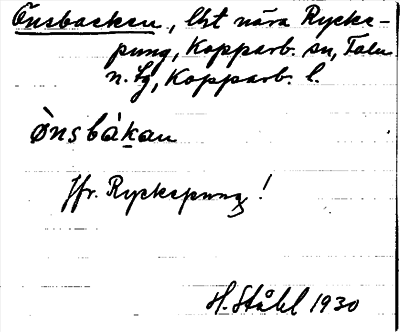 Önsbacken, lht nära Rycks-
pung, Kopparb. sn, Falu
n. tg, Kopparb. l.
ònsbákan
Jfr. Ryckspung!
H. Ståhl 1930